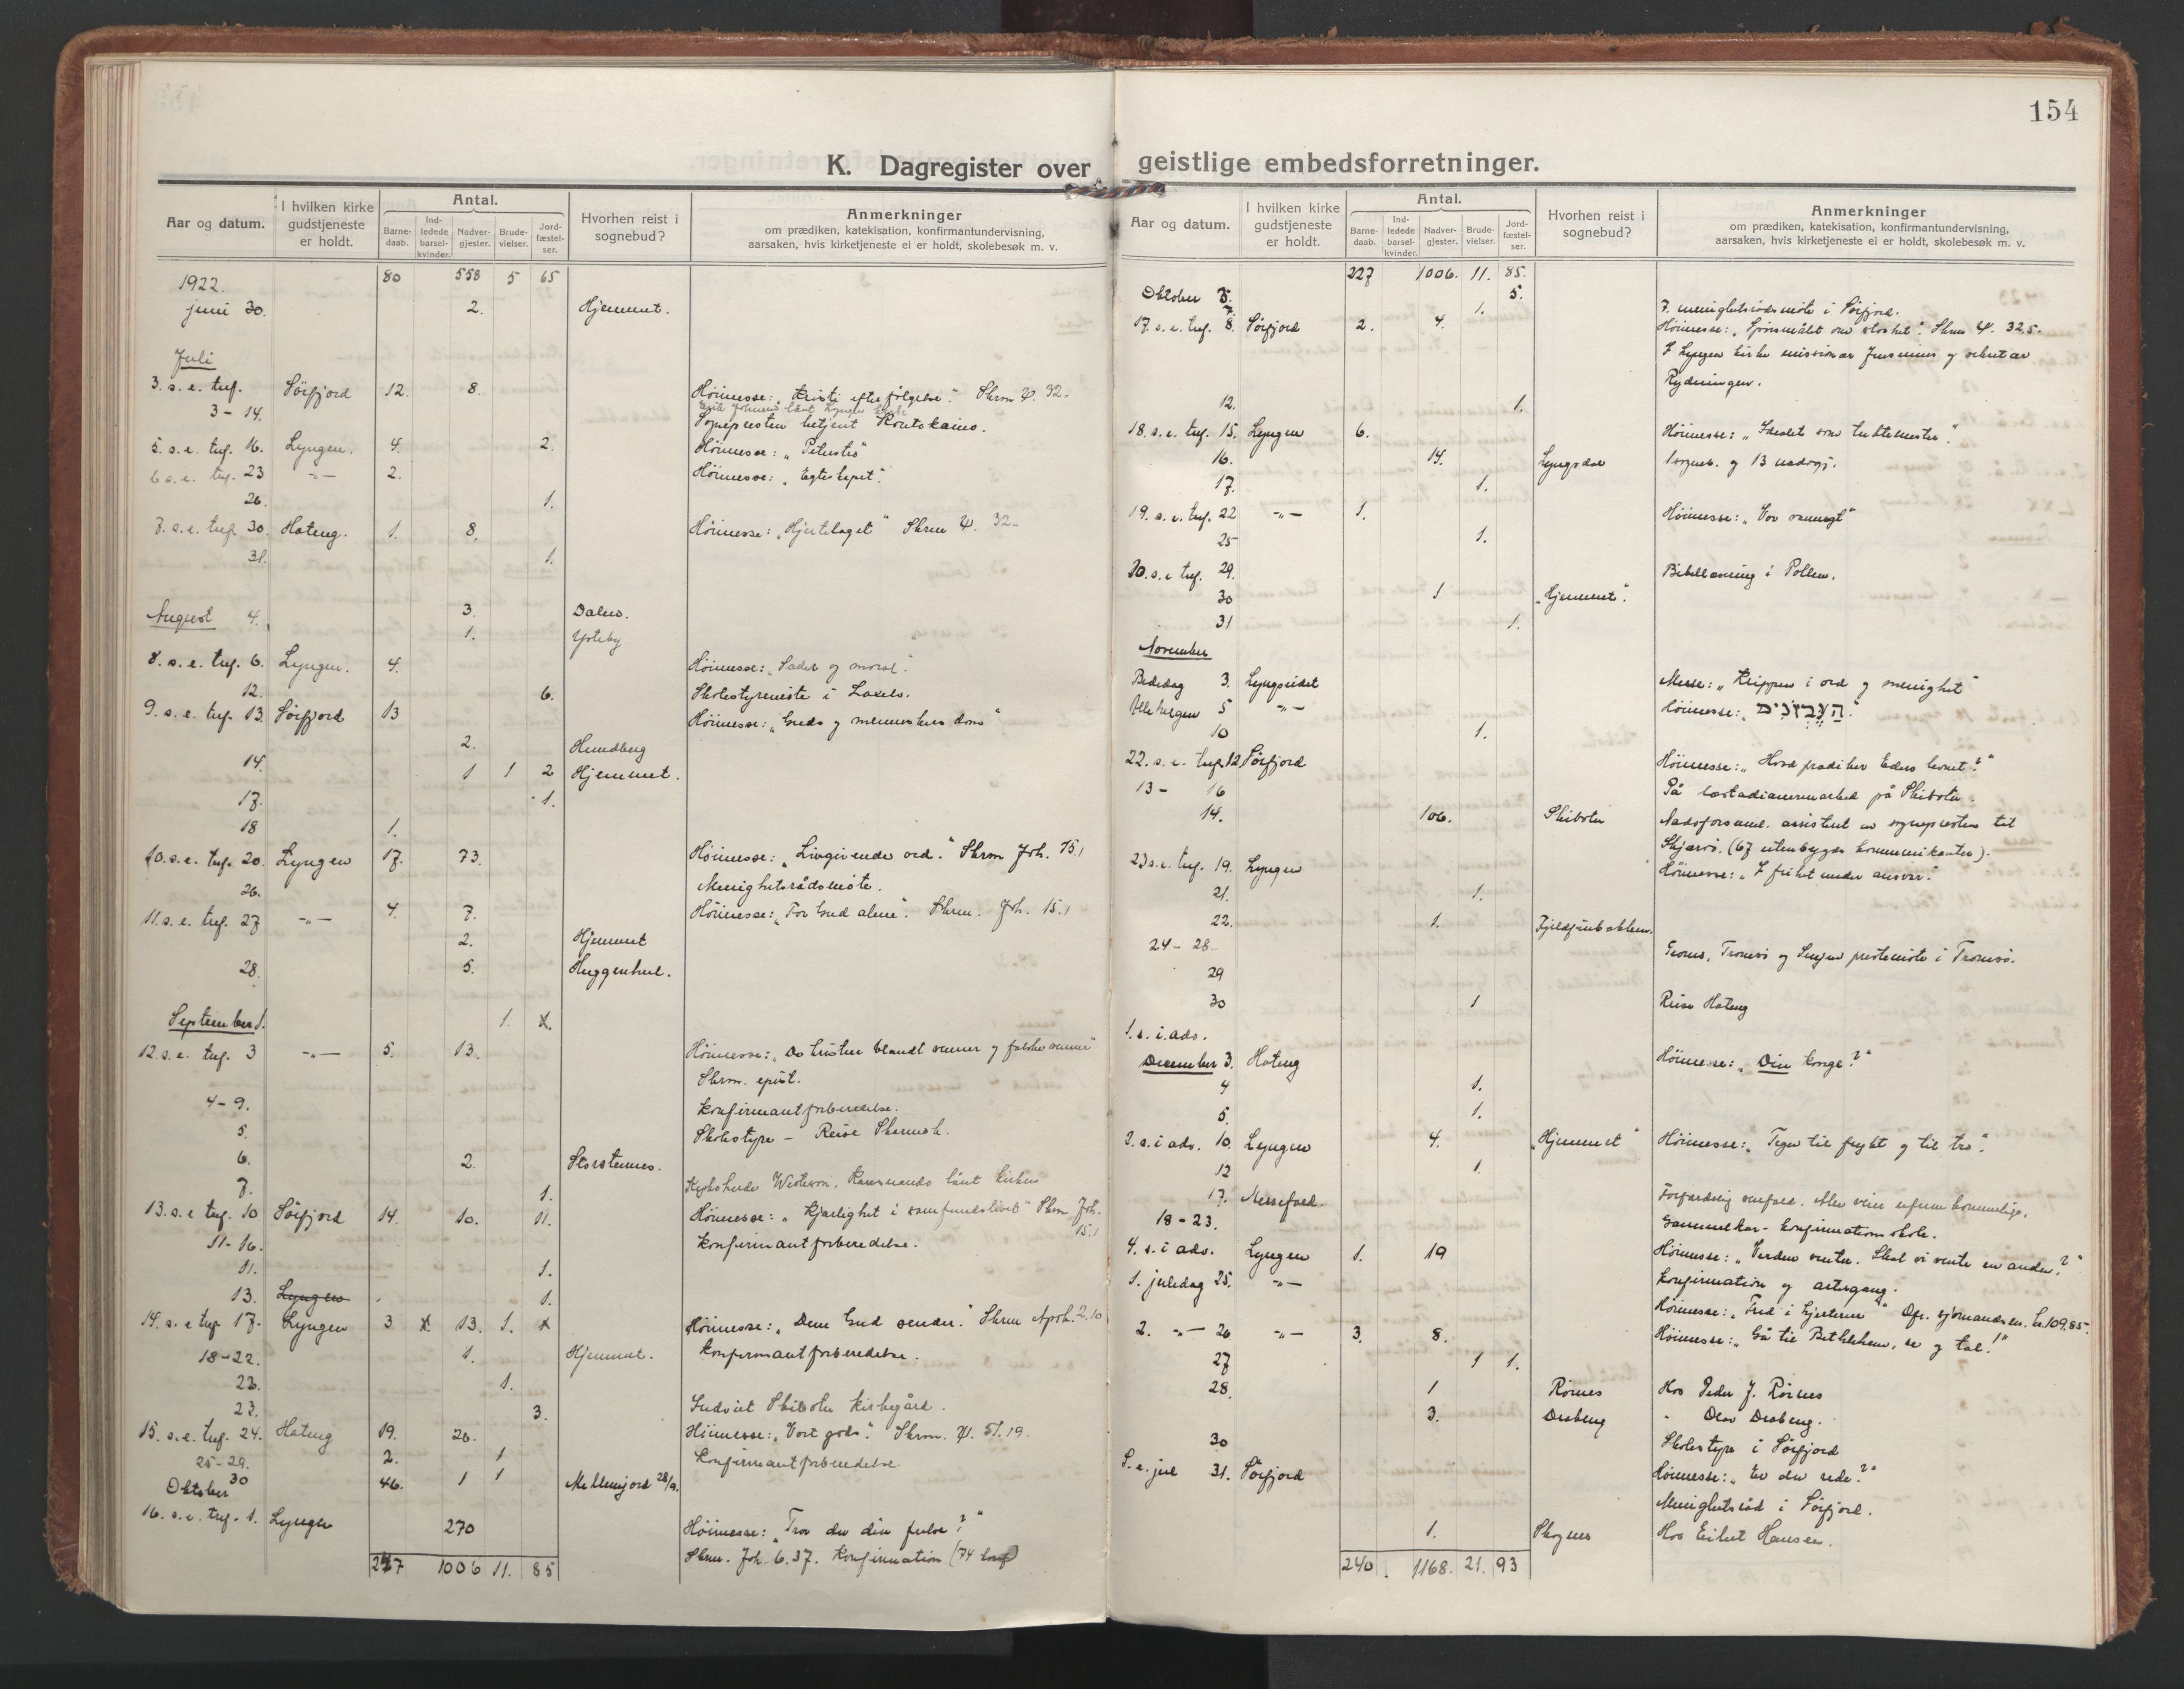 154
K. Dagregister over
geistlige embedsforretninger.
Aar og datum.
I hvilken kirke gudstjeneste er holdt.
Antal.
Barne-daab.
Ind-ledede barsel-kvinder.
Nadver-gjester.
Brude-vielser.
Jord-fæstel-ser.
Hvorhen reist i sognebud?
Anmerkninger
om prædiken, katekisation, konfirmantundervisning,
aarsaken, hvis kirketjeneste ei er holdt, skolebesøk m. v.
1922. 80 558 5 65
juni 30. 2. Hjemmet.
Juli
3. s. e. tref. Sörfjord 12. 8. Höimesse: „Kristi efterfölgelse“. Skrm ψ. 32.
3-14. Sognepresten betjent Kautokeino.
5. s. e. tref. 16. Lyngen. 4. 2. Höimesse: „
6 s. e. tref. 23 -„- 2. Höimesse: „Egteskapet“.
26. 1.
7. s. e. tref. 30. Hateng. 1. 8. Höimesse: „Hjertelaget“ Skrm ψ. 32-
31. 1.
August 4. 3. Dalen.
1. Ysteby
8. s. e. tref. 6. Lyngen. 4. Höimesse: „Sæder og moral“.
12. 6. Skolestyremöte i Lakselv.
9. s. e. tref. 13. Sörfjord 13 Höimesse: „Guds og menneskers dom“
2. Hundberg
14. 1 1 2 Hjemmet.
17. 1.
18 1.
10. s. e. tref. 20. Lyngen 17. 73. Höimesse: „Livgivende ord.“ Skrm Joh. 15.1
26. Menighetsrådsmöte.
11. s. e. tref. 27 -„- 4. 7. Höimesse: „For Gud alene“. Skrm. Joh. 15.1
2. Hjemmet
28. 5. Huggenhul.
September 1. 1. x.
12. s. e. tref. 3 -„- 5. 13. Höimesse: „De kristne blandt venner og falske venner“
Skrm. epist.
4-9. Konfirmantforberedelse.
5. Skolestyre - Reise Skarmoh.
6. 2. Storstennes.
7. 1. lånt kirken
13. s. e. tref. 10 Sörfjord 14. 10. 11. Höimesse: „Kjærlighet i samfundslivet“ Skrm Joh. 15.1
11-16. Konfirmantforberedelse.
11. 1.
13. Lyngen 1.
14. s. e. tref. 17. Lyngen 3 x. 13. 1. x Höimesse: „Dem Gud sender.“ Skrm Apok. 2.10
18-22. 1. Hjemmet. Konfirmantforberedelse.
23. 1.
23. 3. Indviet Skibotn kirkegård.
15. s. e. tref. 24. Hateng 19. 26. Höimesse: „Vort gods“. Skrm. ψ. 51.19.
25-29. 2. 1 Konfirmantforberedelse.
30 46. 1 1 Mellemjord 28/9.
Oktober
16. s. e. tref. 1. Lyngen 270 Höimesse: „Tror du din frelse?“
Skrm. Joh. 6.37. Konfirmation (74 konf)
227 1006 11. 85
Aar og datum.
I hvilken kirke gudstjeneste er holdt.
Antal.
Barne-daab.
Ind-ledede barsel-kvinder.
Nadver-gjester.
Brude-vielser.
Jord-fæstel-ser.
Hvorhen reist i sognebud?
Anmerkninger
om prædiken, katekisation, konfirmantundervisning,
aarsaken, hvis kirketjeneste ei er holdt, skolebesøk m. v.
227 1006. 11. 85.
Oktober 3. 5.
7. 1. 7. menighetsrådsmöte i Sörfjord.
17. s. e. tref. 8. Sörfjord 2. 4. Höimesse: „Spörsmålet om storhet“. Skrm ψ. 32.5.
I Lyngen kirke missionær og sekretær
Rydningen.
12. 1.
18. s. e. tref. 15. Lyngen 6. Höimesse: „Idealet som tuktemester“.
16. 14. Lyngsdal 1 sogneb. og 13 nadvgj.
17. 1.
19. s. e. tref. 22 -„- 1. Höimesse: „Vor
25 1.
20. s. e. tref. 29. Bibellæsning i Pollen.
30 1 „Hjemmet“.
31 1.
November
Bededag 3. Lyngseidet Messe: „Klippen i ord og menighet“
Allehelgen 5 -„- Höimesse: „
10 1.
22. s. e. tref. 12. Sörfjord Höimesse: „Hvad prædiker Eders levnet?“
13- 16 På læstadianermarked på Skibotn.
14. 106. Skibotn Nadvforsaml. assistert av sognepresten til
Skjærvö. (67 utenbygds kommunikanter).
23 s. e. tref. 19. Lyngen Höimesse: „I frihet under ansvar.“
21. 1.
22. 1.
24-28. Troms, Tromsö og Senjens prestemöte i Tromsö.
29
30 1 Reise Hateng
1. s. i. adv.
December 3. Hateng Höimesse: „Din konge?“
4 1.
5. 1.
2. s. i adv. 10. Lyngen 4. „Hjemmet“ Höimesse: „Tegn til frykt og til tro“.
12 1.
17. Messefald. Forfærdelig snefald. Alle veier ufremkommelige.
18-23. Gammelkar-konfirmationsskole.
4. s. i adv. Lyngen 1. 19 Höimesse: „Verden venter. Skal vi vente en anden?“
Konfirmation og altergang.
1. juledag 25. -„- Höimesse: „Fred i hjerterne“ Ofr. sjömandsm. kr. 109.85.
2. -„- 26 -„- 3. 8. Höimesse: „Gå til Bethlehem, se og tal!“
27 1 1.
28. 1 Rörnes Hos Peder J. Rörnes
3. Draberg „ Olav Draberg.
30 Skolestyre i Sörfjord
S. e. jul 31. Sörfjord Höimesse: „Er du rede?“
Menighetsråd i Sörfjord.
1. Skognes Hos Eilert Hansen.
240 1168. 21. 93